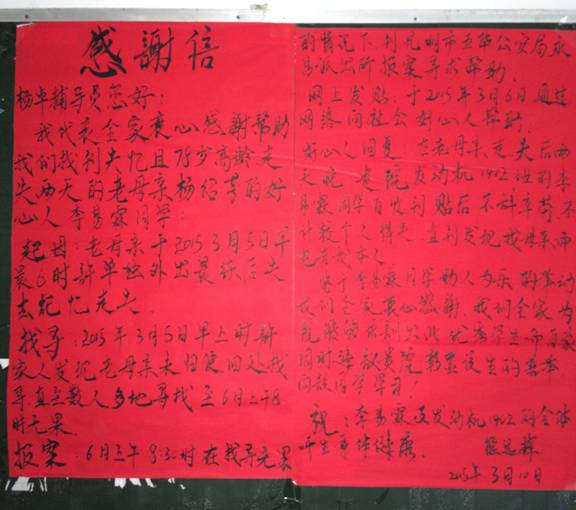 感謝信
杨半辅导员您好：
我代表全家衷心感谢帮助
我们找到失忆且78岁高龄走
失两天的老母亲杨绍芳的好
心人李易霖同学：
起因：老母亲于2015 3月5日早
晨6时许单独外出晨练后失
去记忆走失
找寻：2015年3月5日早上时许
家人发现老母亲未归便四处找
寻直至数人多地寻找至6日上午8
时无果.
报案：6日上午8:30时在找寻无果
的情况下到昆明市五华公安局
派出所报案寻求帮助.
网上发贴：于2015年3月6日通过
网络向社会好心人帮助.
好心人回复 在老母亲走失后两
天晚 院发动机1402班的李
易霖同学自收到贴后不辞辛劳不
计较个人得失 直到发现我母亲而
告知本人.
对李易霖同学助人为乐的举动
我们全家衷心感谢 我们全家为
优秀学生而自豪
同时 院
向该同学学习！
祝：李易霖及发动机1402的全体
师生身体健康.
2015年3月10日